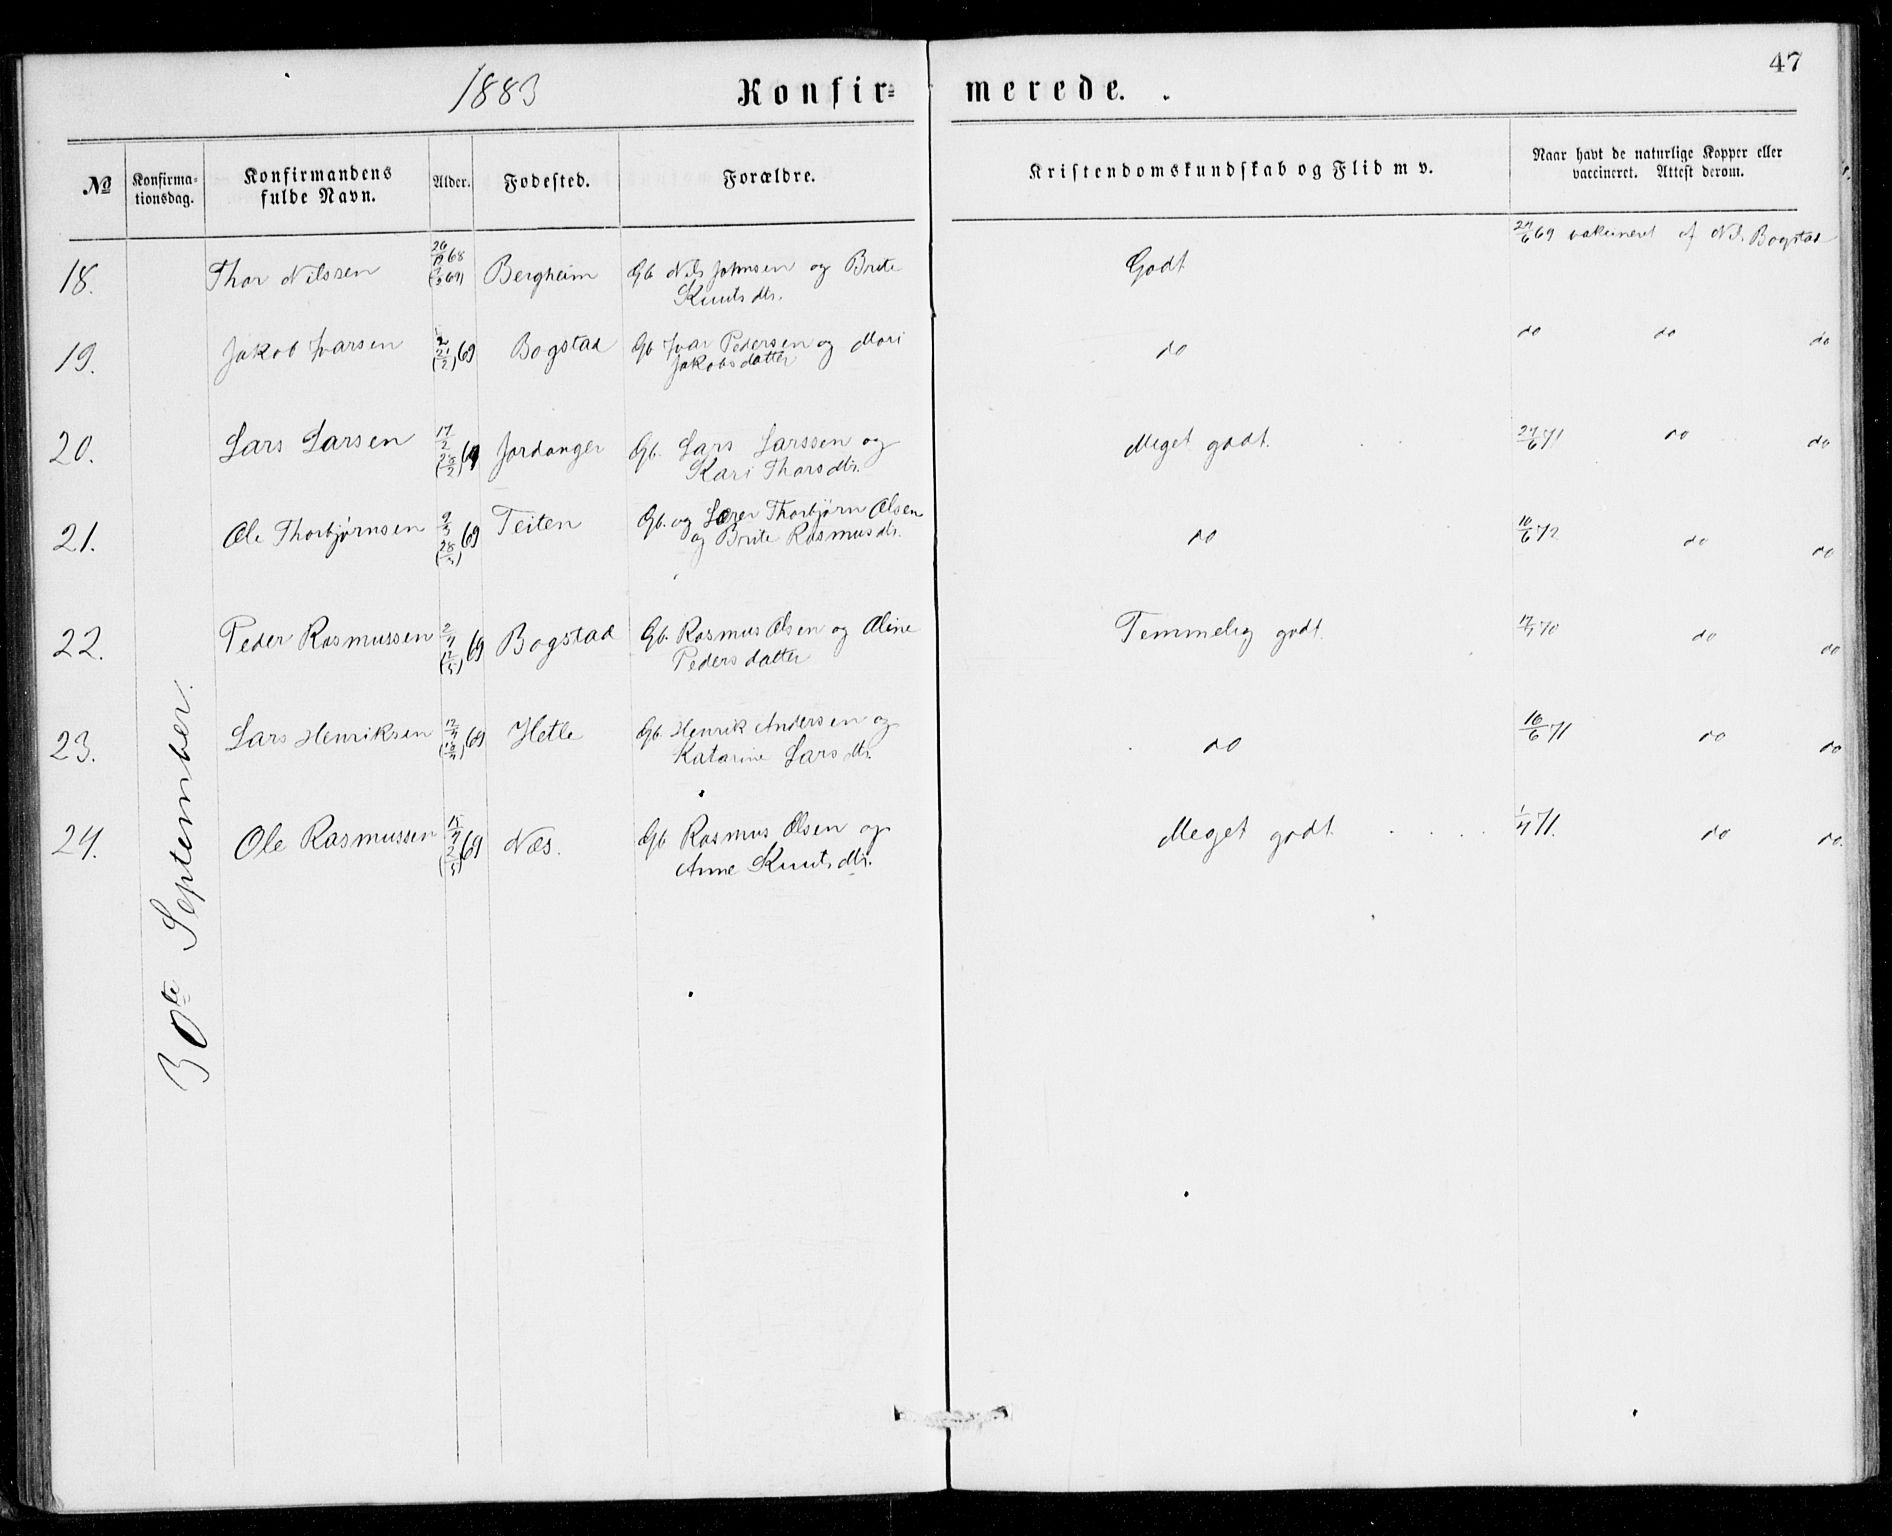 47
1883 Konfir= merede.
№ Konfirma-tionsdag. Konfirmandens fulde Navn. Alder. Fødested. Forældre. Kristendomskundskab og Flid m v. Naar havt de naturlige Kopper eller vaccineret. Attest derom.
18. Thor Nilssen 68 Bergheim Gb Nils Johnsen og Brite Godt 69 vakcineret af N.S. Bogstad
Knutsdtr.
19. Jakob Ivarsen 2 (21/2) 69 Bogstad Gb Ivar Pedersen og Mari do do do do
Jakobsdatter
20. Lars Larsen 17/2 (28/2) 69 Jordanger Gb. Lars Larssen og Meget godt. 24/6 71 do do
Kari Thorsdtr.
21. Ole Thorbjørnsen (28/3) 69 Teiten Gb. og Lærer Thorbjørn Olsen do 10/6 72 do do
og Brite Rasmusdtr.
22. Peder Rasmussen 69 Bogstad Gb. Rasmus Olsen og Oline Temmelig godt. 70 do do
Pedersdatter
23. Lars Henriksen 69 Hetle Gb. Henrik Andersen og do 16/6 71 do do
Katarine Larsdtr.
24. Ole Rasmussen 69 Næs. Gb Rasmus Olsen og Meget godt. 71. do do.
Anne Knutsdtr.
30te September.